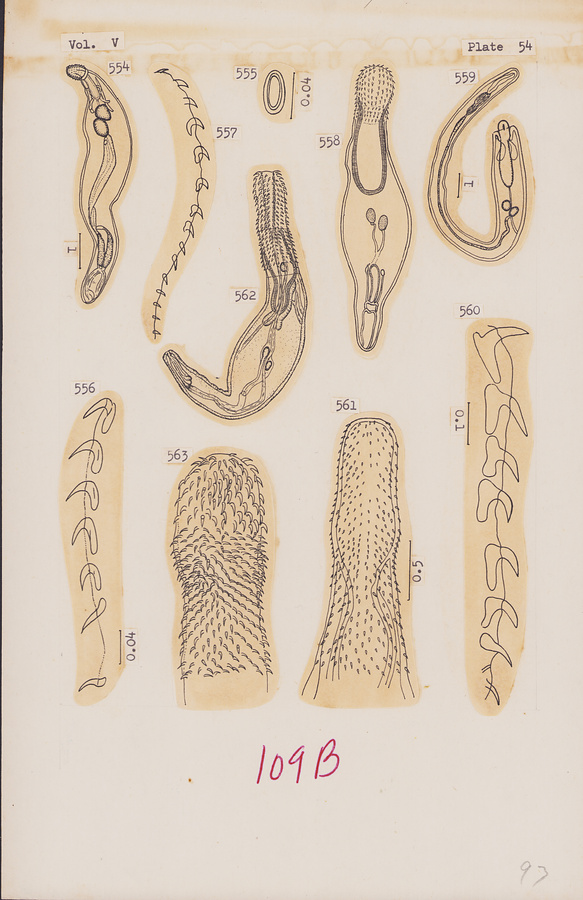 Vol. V
Plate 54
554
555
0.04
558
559
557
1
1
562
560
556
561
0.1
563
0.5
0.04
109B
93